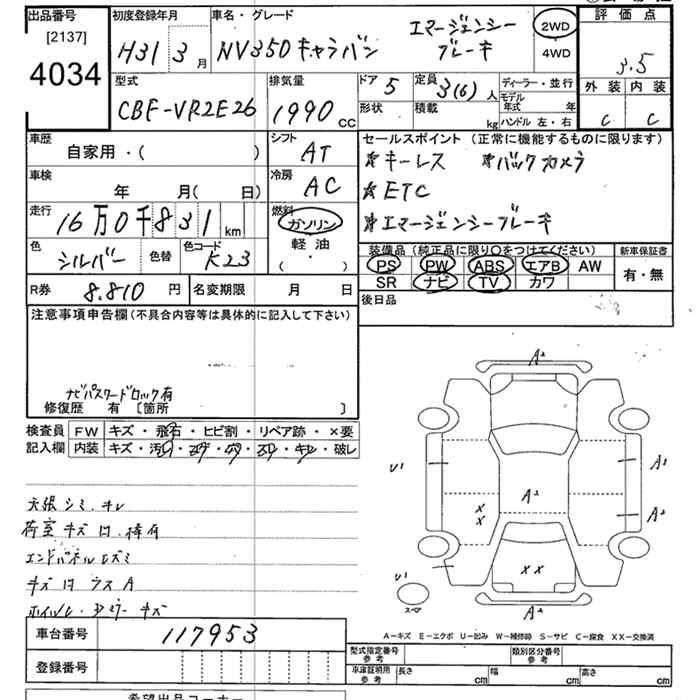 出品番号
[2137]
4034
初度登録年月
H31 3 月
車名・グレード
NV350 キャラバン
エマージェンシー
ブレーキ
2WD
4WD
評価点
3.5
外装 内装
C C
型式
CBF-VR2E26
排気量
1990 cc
ドア 5
形状
定員 3(6) 人
積載 kg
ディーラー・並行
モデル年式 年
ハンドル 左・右
車歴
自家用・( )
シフト
AT
車検
年 月( 日)
冷房
AC
走行
16万0千831 km
燃料
ガソリン
軽油
( ・ )
色
シルバー
色替
色コード
K23
セールスポイント (正常に機能するものに限ります)
★キーレス ★バックカメラ
★ETC
★エマージェンシーブレーキ
装備品 (純正品に限り○をつけてください)
PS PW ABS エアB AW
SR ナビ TV カワ
新車保証書
有・無
R券 8.810 円
名変期限 月 日
後日品
注意事項申告欄(不具合内容等は具体的に記入して下さい)
ナビパスワードロック有
修復歴 有 [箇所 ]
検査員
記入欄
FW キズ・飛石・ヒビ割・リペア跡・×要
内装 キズ・汚れ・コゲ・穴・スレ・キレ・破レ
天張シミ.キレ
荷室キズ凹.棒有
エンドパネル凹ズミ
キズ凹ウスA
ホイル.Dミラーキズ
A2
U1
A1
A2
A2
XX
XX
U1
スペア
A2
A－キズ E－エクボ U－凹み W－補修跡 S－サビ C－腐食 XX－交換済
車台番号 117953
登録番号
型式指定番号
参考
類別区分番号
参考
車庫証明用
参考
長さ cm 幅 cm 高さ cm
希望出品コーナー